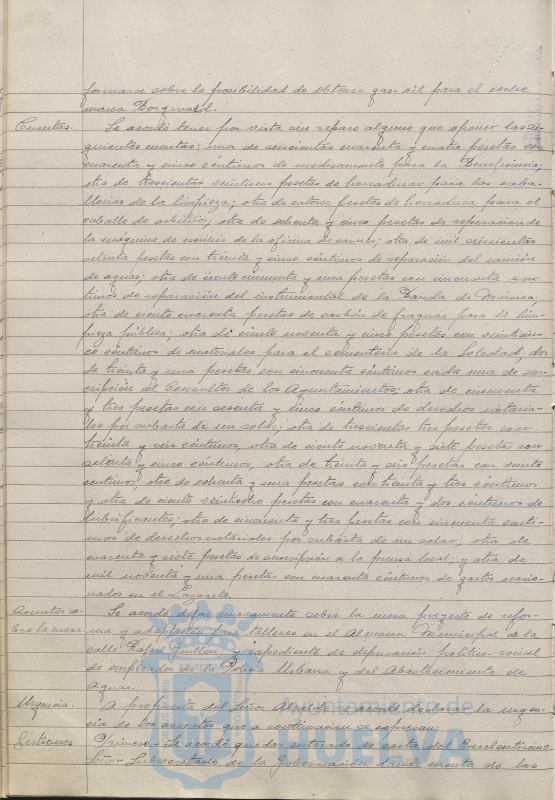 formarse sobre la posibilidad de obtener gas-oil para el coche
marca Borgward.
Cuentas. Se acordó tener por vista sin reparo alguno que oponer las si-
guientes cuentas: una de seiscientas cuarenta y cuatro pesetas con
cuarenta y cinco céntimos de medicamento para la Beneficencia;
otra de trescientas veintiseis pesetas de herraduras para las caba-
llerías de la limpieza; otra de catorce pesetas de herradura para el
caballo de arbitrios; otra de ochenta y cinco pesetas de reparación de
la máquina de escribir de la oficina de; otra de mil seiscientas
setenta pesetas con treinta y cinco céntimos de reparación del camión
de aguas; otra de ciento cincuenta y una pesetas con cincuenta cen-
timos de reparación del instrumental de la Banda de Música;
otra de ciento cuarenta pesetas de carbón de fraguas para la lim-
pieza pública; otra de ciento noventa y cinco pesetas con veinticin-
co céntimos de materiales para el cementerio de la Soledad; dos
de treinta y una pesetas con cincuenta céntimos cada una de sus-
cripción al Consultor de los Ayuntamientos; otra de cincuenta
y tres pesetas con sesenta y cinco céntimos de derechos notaria-
les por subasta de un solar; otra de trescientas tres pesetas con
treinta y seis céntimos, otra de ciento noventa y siete pesetas con
setenta y cinco céntimos, otra de treinta y seis pesetas con
centimos otra de ochenta y una pesetas con treinta y tres céntimos
y otra de ciento veintiocho pesetas con cuarenta y dos céntimos de
lubrificantes; otra de cincuenta y tres pesetas con cincuenta centi-
mos de derechos notariales por subasta de un solar, otra de
cuarenta y siete pesetas de suscripción a la prensa local; y otra de
mil noventa y una pesetas con cuarenta céntimos de gastos ocasio-
nados en el Lazareto.
Asuntos so- Se acordó dejar nuevamente sobre la mesa proyecto de refor-
bre la mesa ma y adaptación para talleres en el Almacen Municipal de la
calle Rafael Guillen, y expediente de depuración político-social
de empleados de la Policía Urbana y del Abastecimiento de
Aguas.
Urgencia. A propuesta del Señor Alcalde se acordó declarar la urgen-
cia de los asuntos que a continuacion se expresan:
Gestiones Primero.- Se acordó quedar enterado de carta del Excelentísimo
Señor Subsecretario de la Gobernación dando cuenta de las
Ayuntamiento de